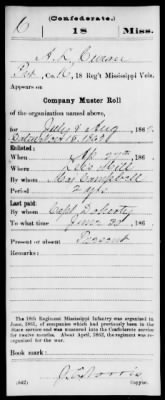 (Confederate.)
C 18 Miss.
Pvt, Co. K, 18 Reg't Mississippi Vols.
Appears on
Company Muster Roll
of the organization named above,
for July & Aug, 186
Enlisted:
When 186
Where
By whom Maj Campbell
Period 2 yrs.
Last paid:
By whom Capt Doherty
To what time June 30, 186
Present or absent Present
Remarks:
The 18th Regiment Mississippi Infantry was organized in
June, 1861, of companies which had previously been in the
state service and was mustered into the Confederate service
for twelve months. About April, 1862, the regiment was re-
organized for the war.
Book mark:
(642) Copyist.